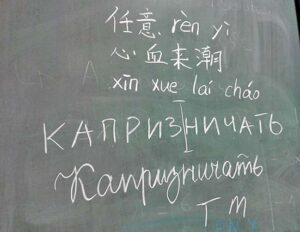 任意 rèn yì
心血来潮
xīn xue lai cháo
КАПРИЗНИЧАТЬ
Капризничать
Т м